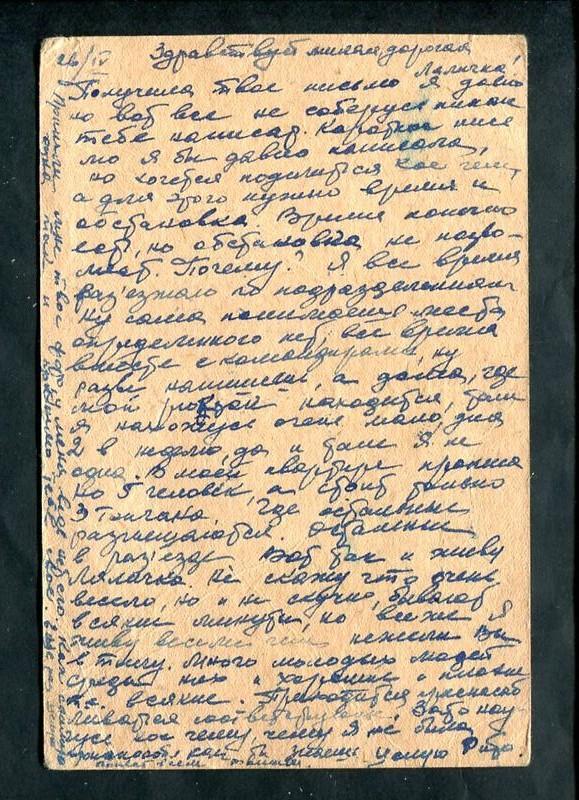 26/IV
Здравствуй милая, дорогая
Лялечка!
Получила твое письмо я давно
но вот все не соберусь никак
тебе написать. Короткое пись
мо я бы давно написала,
но хочется поделиться кое чем,
а для этого нужно время и
обстановка. Время конечно
есть, но обстановка не позво-
ляет. Почему? Я все время
раз'езжаю по подразделениям
ну сама понимаешь места
определенного нет, все время
вместе с командирами, ну
разве напишешь, а дома, где
мой находится, там
я нахожусь очень мало, дня
2 в неделю, да и там я не
одна. В моей квартире прописа
но 5 человек, а стоит только
3 топчана, где остальные
размещаются. Остальные
в раз'езде. Вот так и живу
Лялечка. Не скажу что очень
весело, но и не скучно, бывают
всякие минуты, но все же я
живу веселее чем нежели Вы
в тылу. Много молодых людей
среди них и хорошие и плохие
т.е. всякие. Приходится
Зато нау-
чусь кое чему, чему я не была
Целую Рита.
Пришли мне твое фото у меня ведь